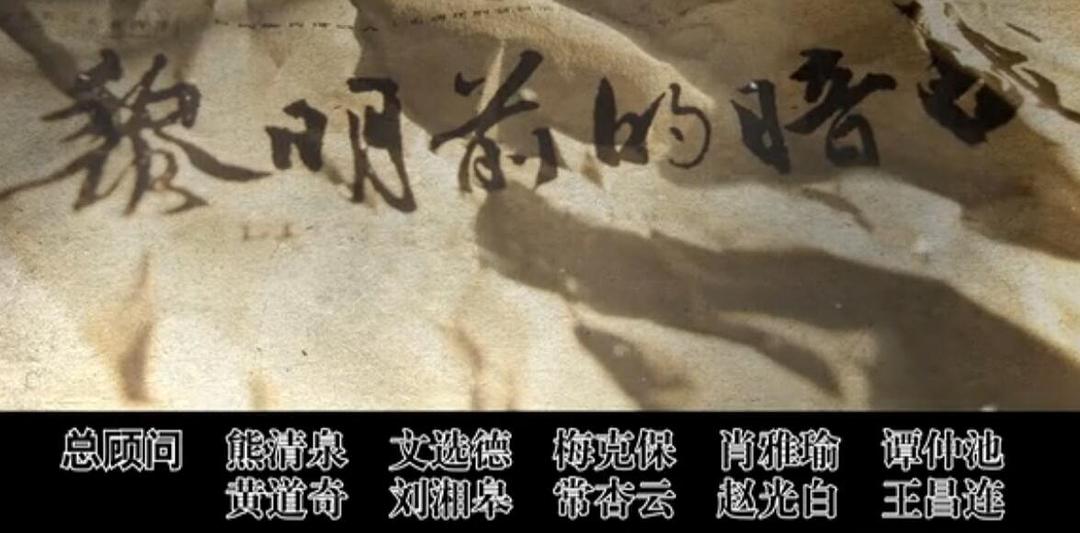 黎明前的暗
总顾问 熊清泉 文选德 梅克保 肖雅瑜 谭仲池
黄道奇 刘湘皋 常杏云 赵光白 王昌连